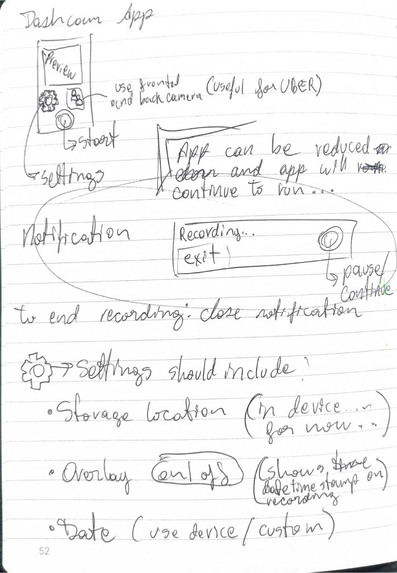 Dashcam App
Preview
use frontal
and back camera (useful for UBER)
start
settings
App can be reduced
and app will
continue to run...
Notification
Recording...
exit
pause/
continue
to end recording: close notification
Settings should include:
• Storage location (in device...
for now...)
• Overlay on/off (shows
date time stamp on
recording)
• Date (use device/custom)
52